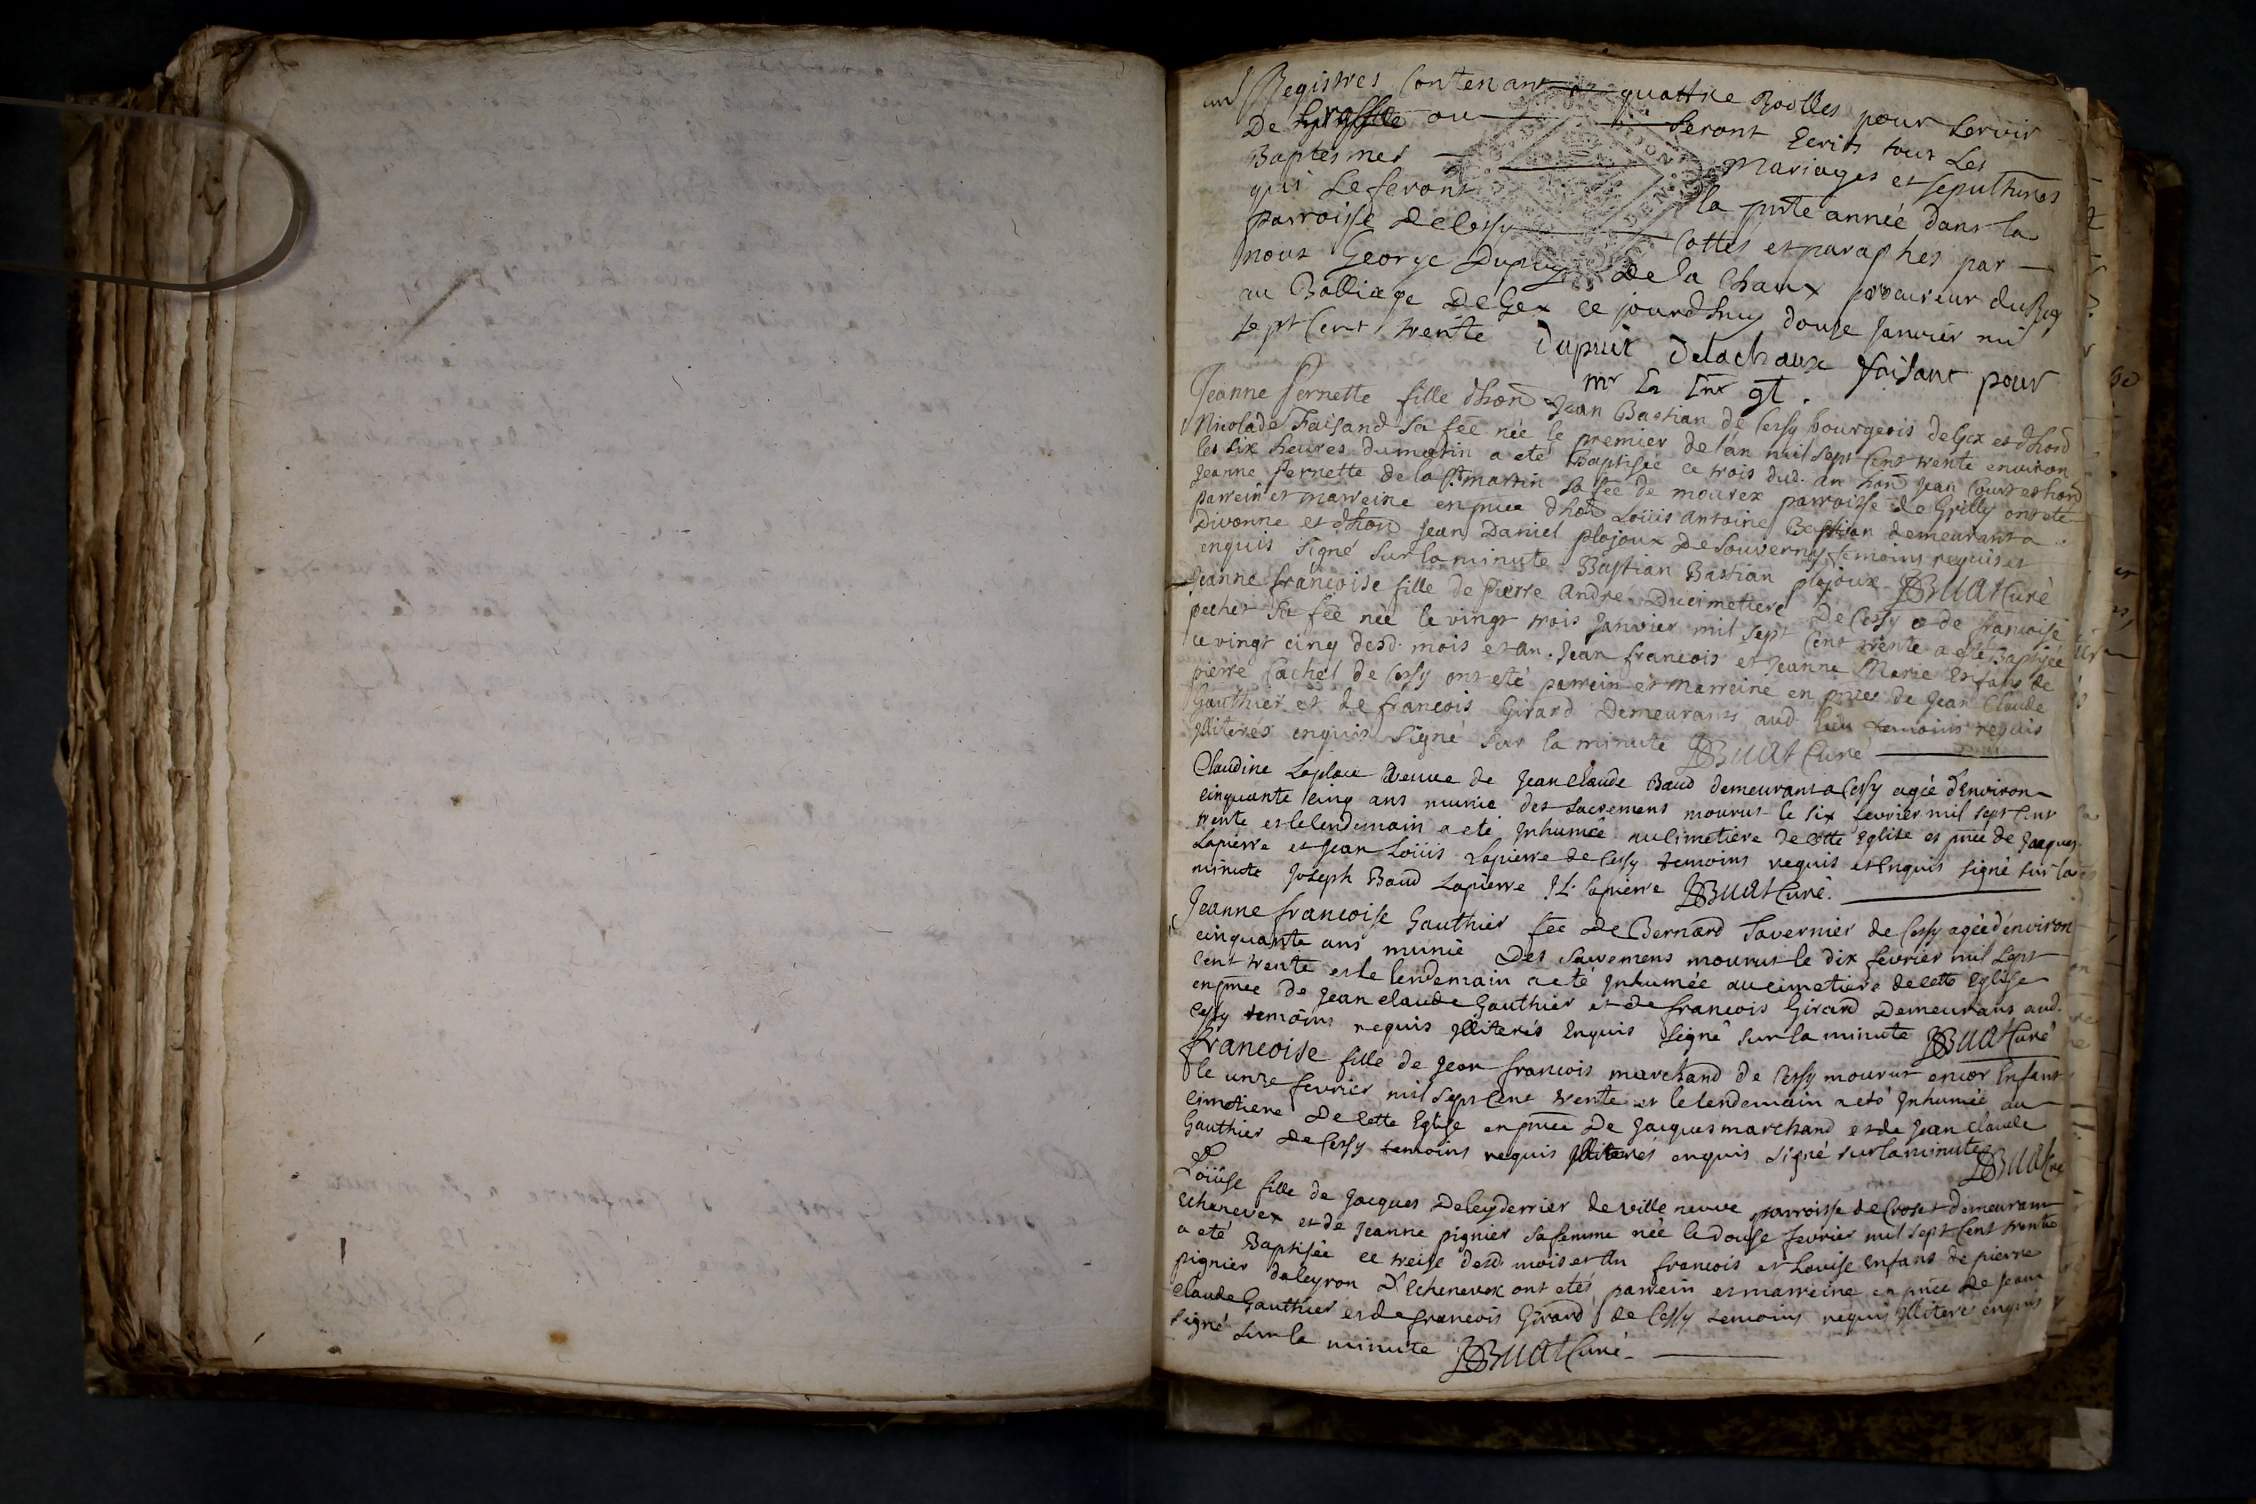 Registres Contenant quattre Roolles pour servir
De Groffe ou seront Ecrits tous Les
Baptesmes Mariages et sepultures
qui se feront la pnte année dans la
parroisse de Cessy Cottés et paraphes par
nous George Dupuy De la Chaux procureur du Roy
au Balliage De Gex ce jourdhuy douse Janvier mil
sept Cent trente dupuis delachaux faisant pour
mr
Jeanne Pernette fille dhon Jean Bastian de Cessy bourgeois de Gex et dhon
Nicolade Faisand sa fée née le premier de l'an mil sept Cent trente environ
les six heures du matin a eté Baptisée ce trois dud. an hon Jean Court et hon
Jeanne Pernette de la St martin sa fée de mourex parroisse de Grilly ont eté
parrein et marreine en pnce dhon Loüis Antoine Bastian demeurant a
Divonne et dhon Jean Daniel plojoux De Souverny temoins requis et
enquis signé sur la minute Bastian Bastian plojoux JBBuat Curé
Jeanne francoise fille de Pierre André Ducimetiere De Cessy et de francoise
pecher sa fée née le vingt trois Janvier mil sept Cent trente a eté Baptisée
le vingt cinq desd. mois et an. Jean francois et Jeanne Marie Enfans de
pierre Cachet de Cessy ont esté parrein et marreine en pnce de Jean Claude
Gauthier et de francois Girard Demeurants aud. lieu temoins requis
Jlliterés enquis signé sur la minute JBBuat Curé
Claudine Laplace veuve de Jean claude Baud demeurant a Cessy agée d'Environ
cinquante cinq ans munie des sacremens mourut le six fevrier mil sept Cent
trente et le lendemain a eté Jnhumée au Cimetiere de cette Eglise en pnce de Jacques
Lapierre et Jean Loüis Lapierre de Cessy temoins requis et enquis signé sur la
minute Joseph Baud Lapierre JL. lapierre JBBuat Curé.
Jeanne francoise Gauthier fée de Bernard Tavernier de Cessy agée d'environ
cinquante ans munie Des sacremens mourut le dix fevrier mil sept
Cent trente et le lendemain a eté Jnhumée au cimetiere de cette Eglise
en pnce de Jean claude Gauthier et de francois Girard Demeurans aud.
Cessy temoins requis Jlliterés Enquis signé sur la minute JBBuat Curé
francoise fille de Jean francois marchand de Cessy mourut encor Enfant
le unze fevrier mil sept Cent trente et le lendemain a eté Jnhumée au
cimetiere De Cette Eglise en pnce De Jacques marchand et de Jean claude
Gauthier de Cessy temoins requis Jlliterés enquis signé sur la minute
JBBuat Cu
Loüise fille de Jacques Deleyderrier de ville neuve parroisse de Croset demeurant
Echenevex et de Jeanne pignier sa femme née le douse fevrier mil sept Cent trente
a eté Baptisée ce treise desd. mois et An francois et Louise Enfans de pierre
pignier daleyron D'Echenevex ont etés parrein et marreine en pnce de Jean
Claude Gauthier et de francois Girard de Cessy temoins requis Jlliterés enquis
signé sur la minute JBBuat Curé